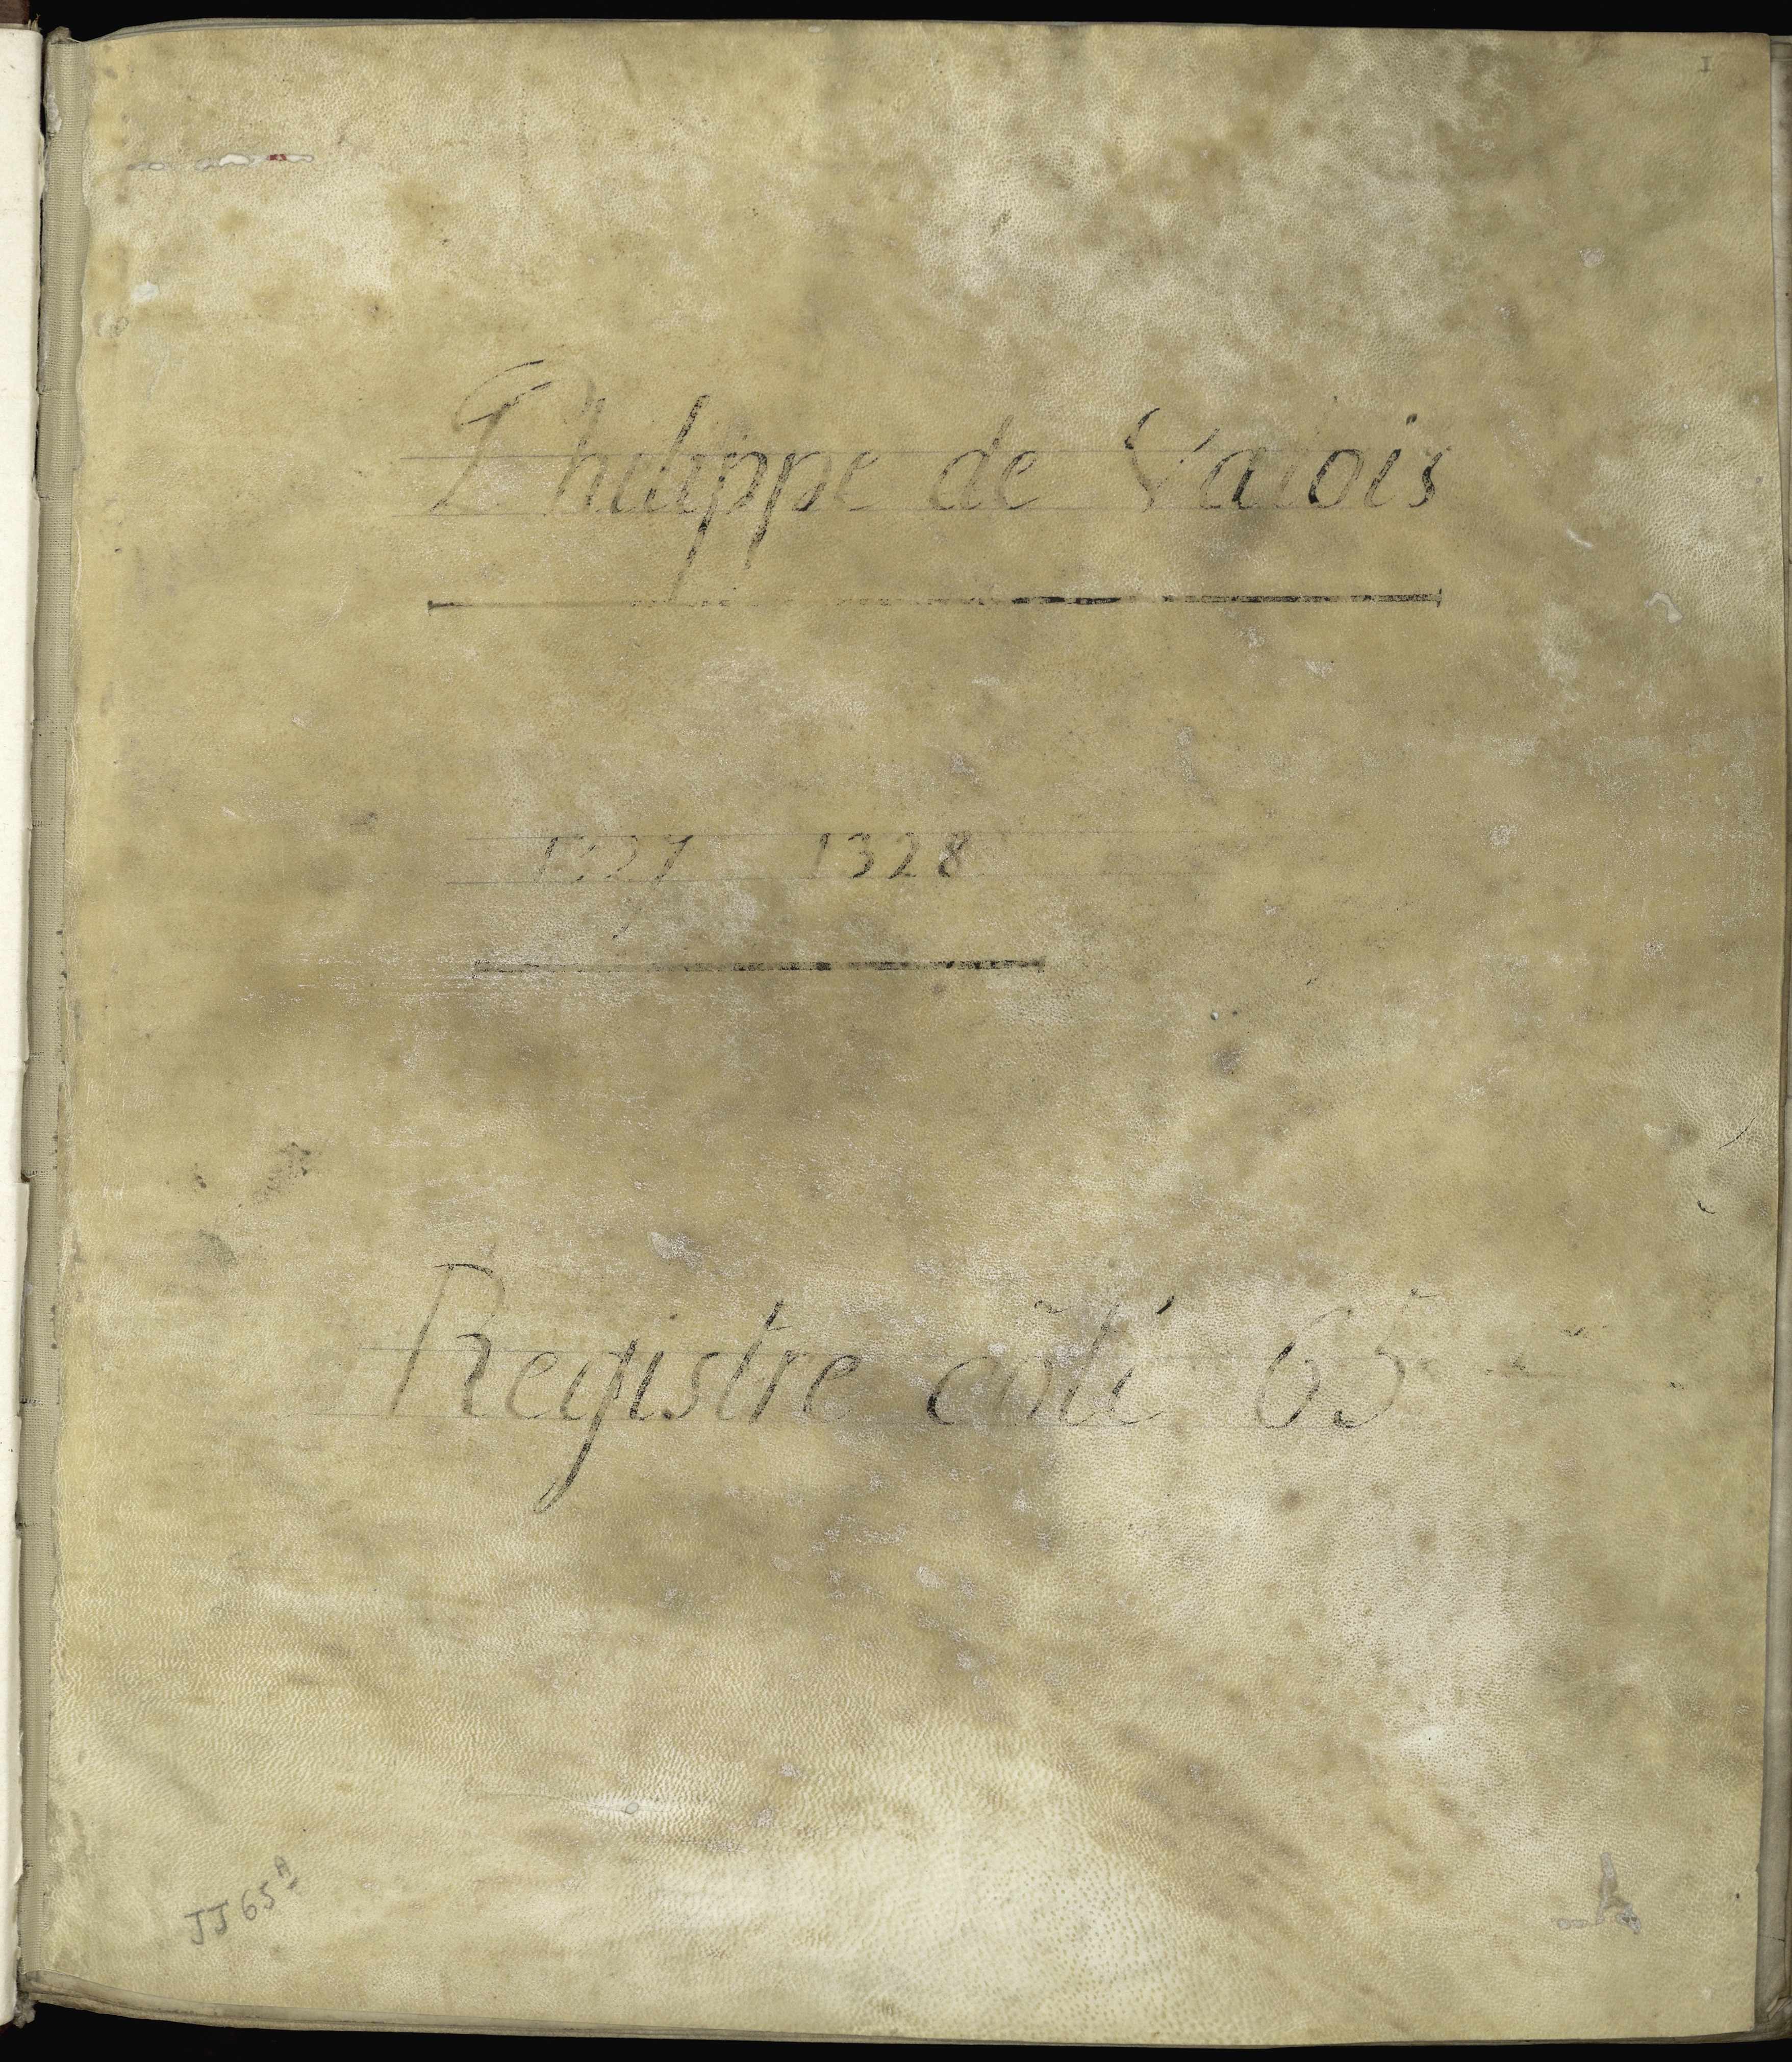 1
Philippe de Valois
1327 1328
Registre coté 65
JJ 65 A